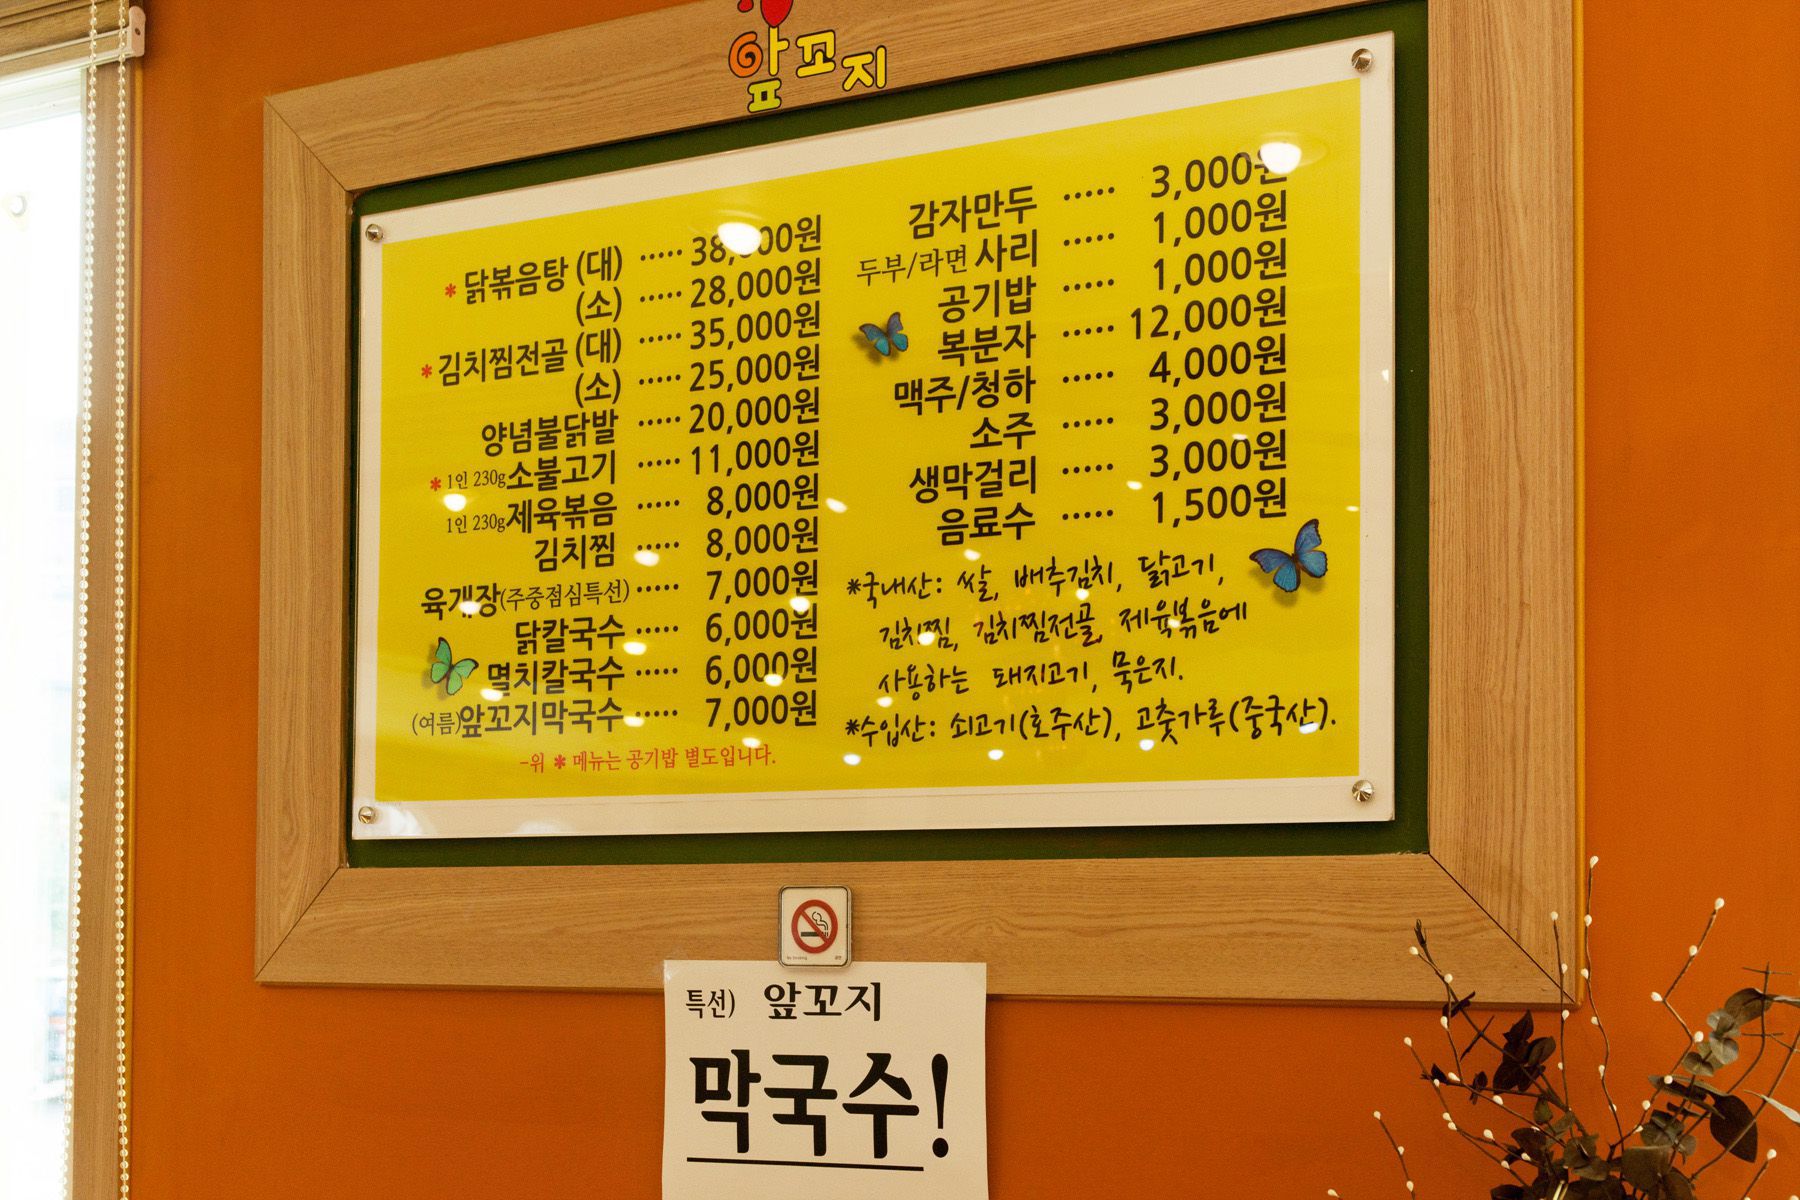 앞꼬지
*닭볶음탕 (대) ····· 38,000원
(소) ····· 28,000원
*김치찜전골 (대) ····· 35,000원
(소) ····· 25,000원
양념불닭발 ····· 20,000원
*1인 230g소불고기 ····· 11,000원
1인 230g제육볶음 ····· 8,000원
김치찜 ····· 8,000원
육개장(주중점심특선) ····· 7,000원
닭칼국수 ····· 6,000원
멸치칼국수 ····· 6,000원
(여름)앞꼬지막국수 ····· 7,000원
-위 * 메뉴는 공기밥 별도입니다.
감자만두 ····· 3,000원
두부/라면 사리 ····· 1,000원
공기밥 ····· 1,000원
복분자 ····· 12,000원
맥주/청하 ····· 4,000원
소주 ····· 3,000원
생막걸리 ····· 3,000원
음료수 ····· 1,500원
*국내산: 쌀, 배추김치, 닭고기,
김치찜, 김치찜전골, 제육볶음에
사용하는 돼지고기, 묵은지.
*수입산: 쇠고기(호주산), 고춧가루(중국산).
특선) 앞꼬지
막국수!